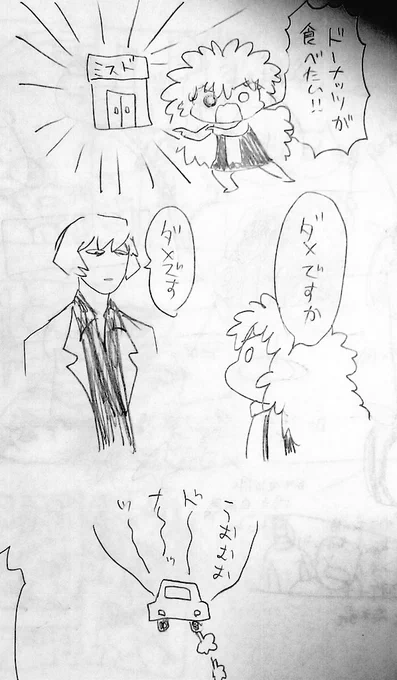 ドーナッツが
食べたい!!
ミスド
ダメですか
ダメです
こむむむ
ド
ナ
ッ
ツ